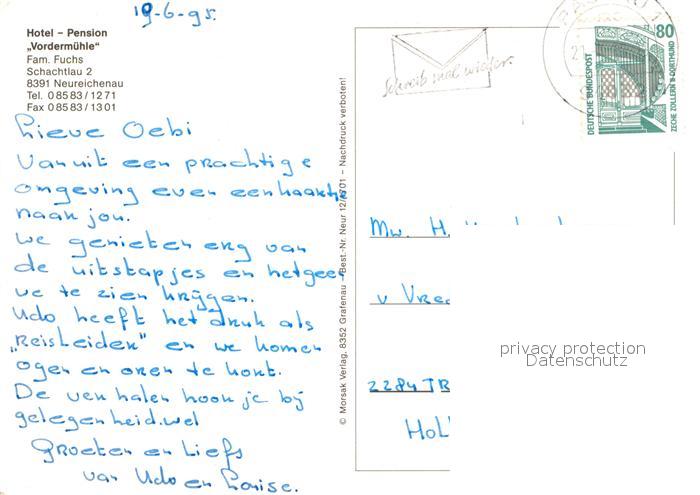 19-6-95.
Hotel – Pension
„Vordermühle"
Fam. Fuchs
Schachtlau 2
8391 Neureichenau
Tel. 0 85 83 / 12 71
Fax 0 85 83 / 13 01
Lieve Oebi
Vanuit een prachtige
omgeving even een kaartje
naar jou.
We genieten erg van
de uitstapjes en hetgeen
we te zien krijgen.
Udo heeft het druk als
„Reisleider" en we komen
ogen en oren te kort.
De verhalen hoor je bij
gelegenheid wel
Groeten en Liefs
van Udo en Louise.
© Morsak Verlag, 8352 Grafenau – Best.-Nr. Neur 12/ 701 – Nachdruck verboten!
Schreib mal wieder.
80
DEUTSCHE BUNDESPOST
ZECHE ZOLLERN II · DORTMUND
Mw. H.
v Vre
2284 TR
Hol
privacy protection
Datenschutz